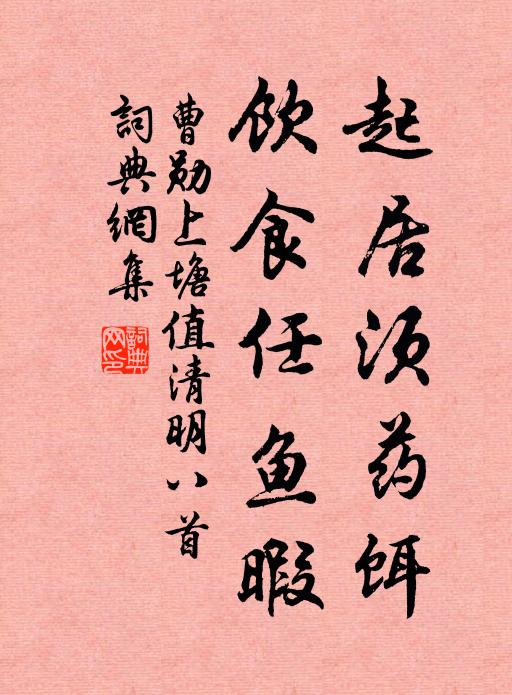 起居须药饵
饮食任鱼暇
曹勋上塘值清明八首
詞典網集
詞典网印